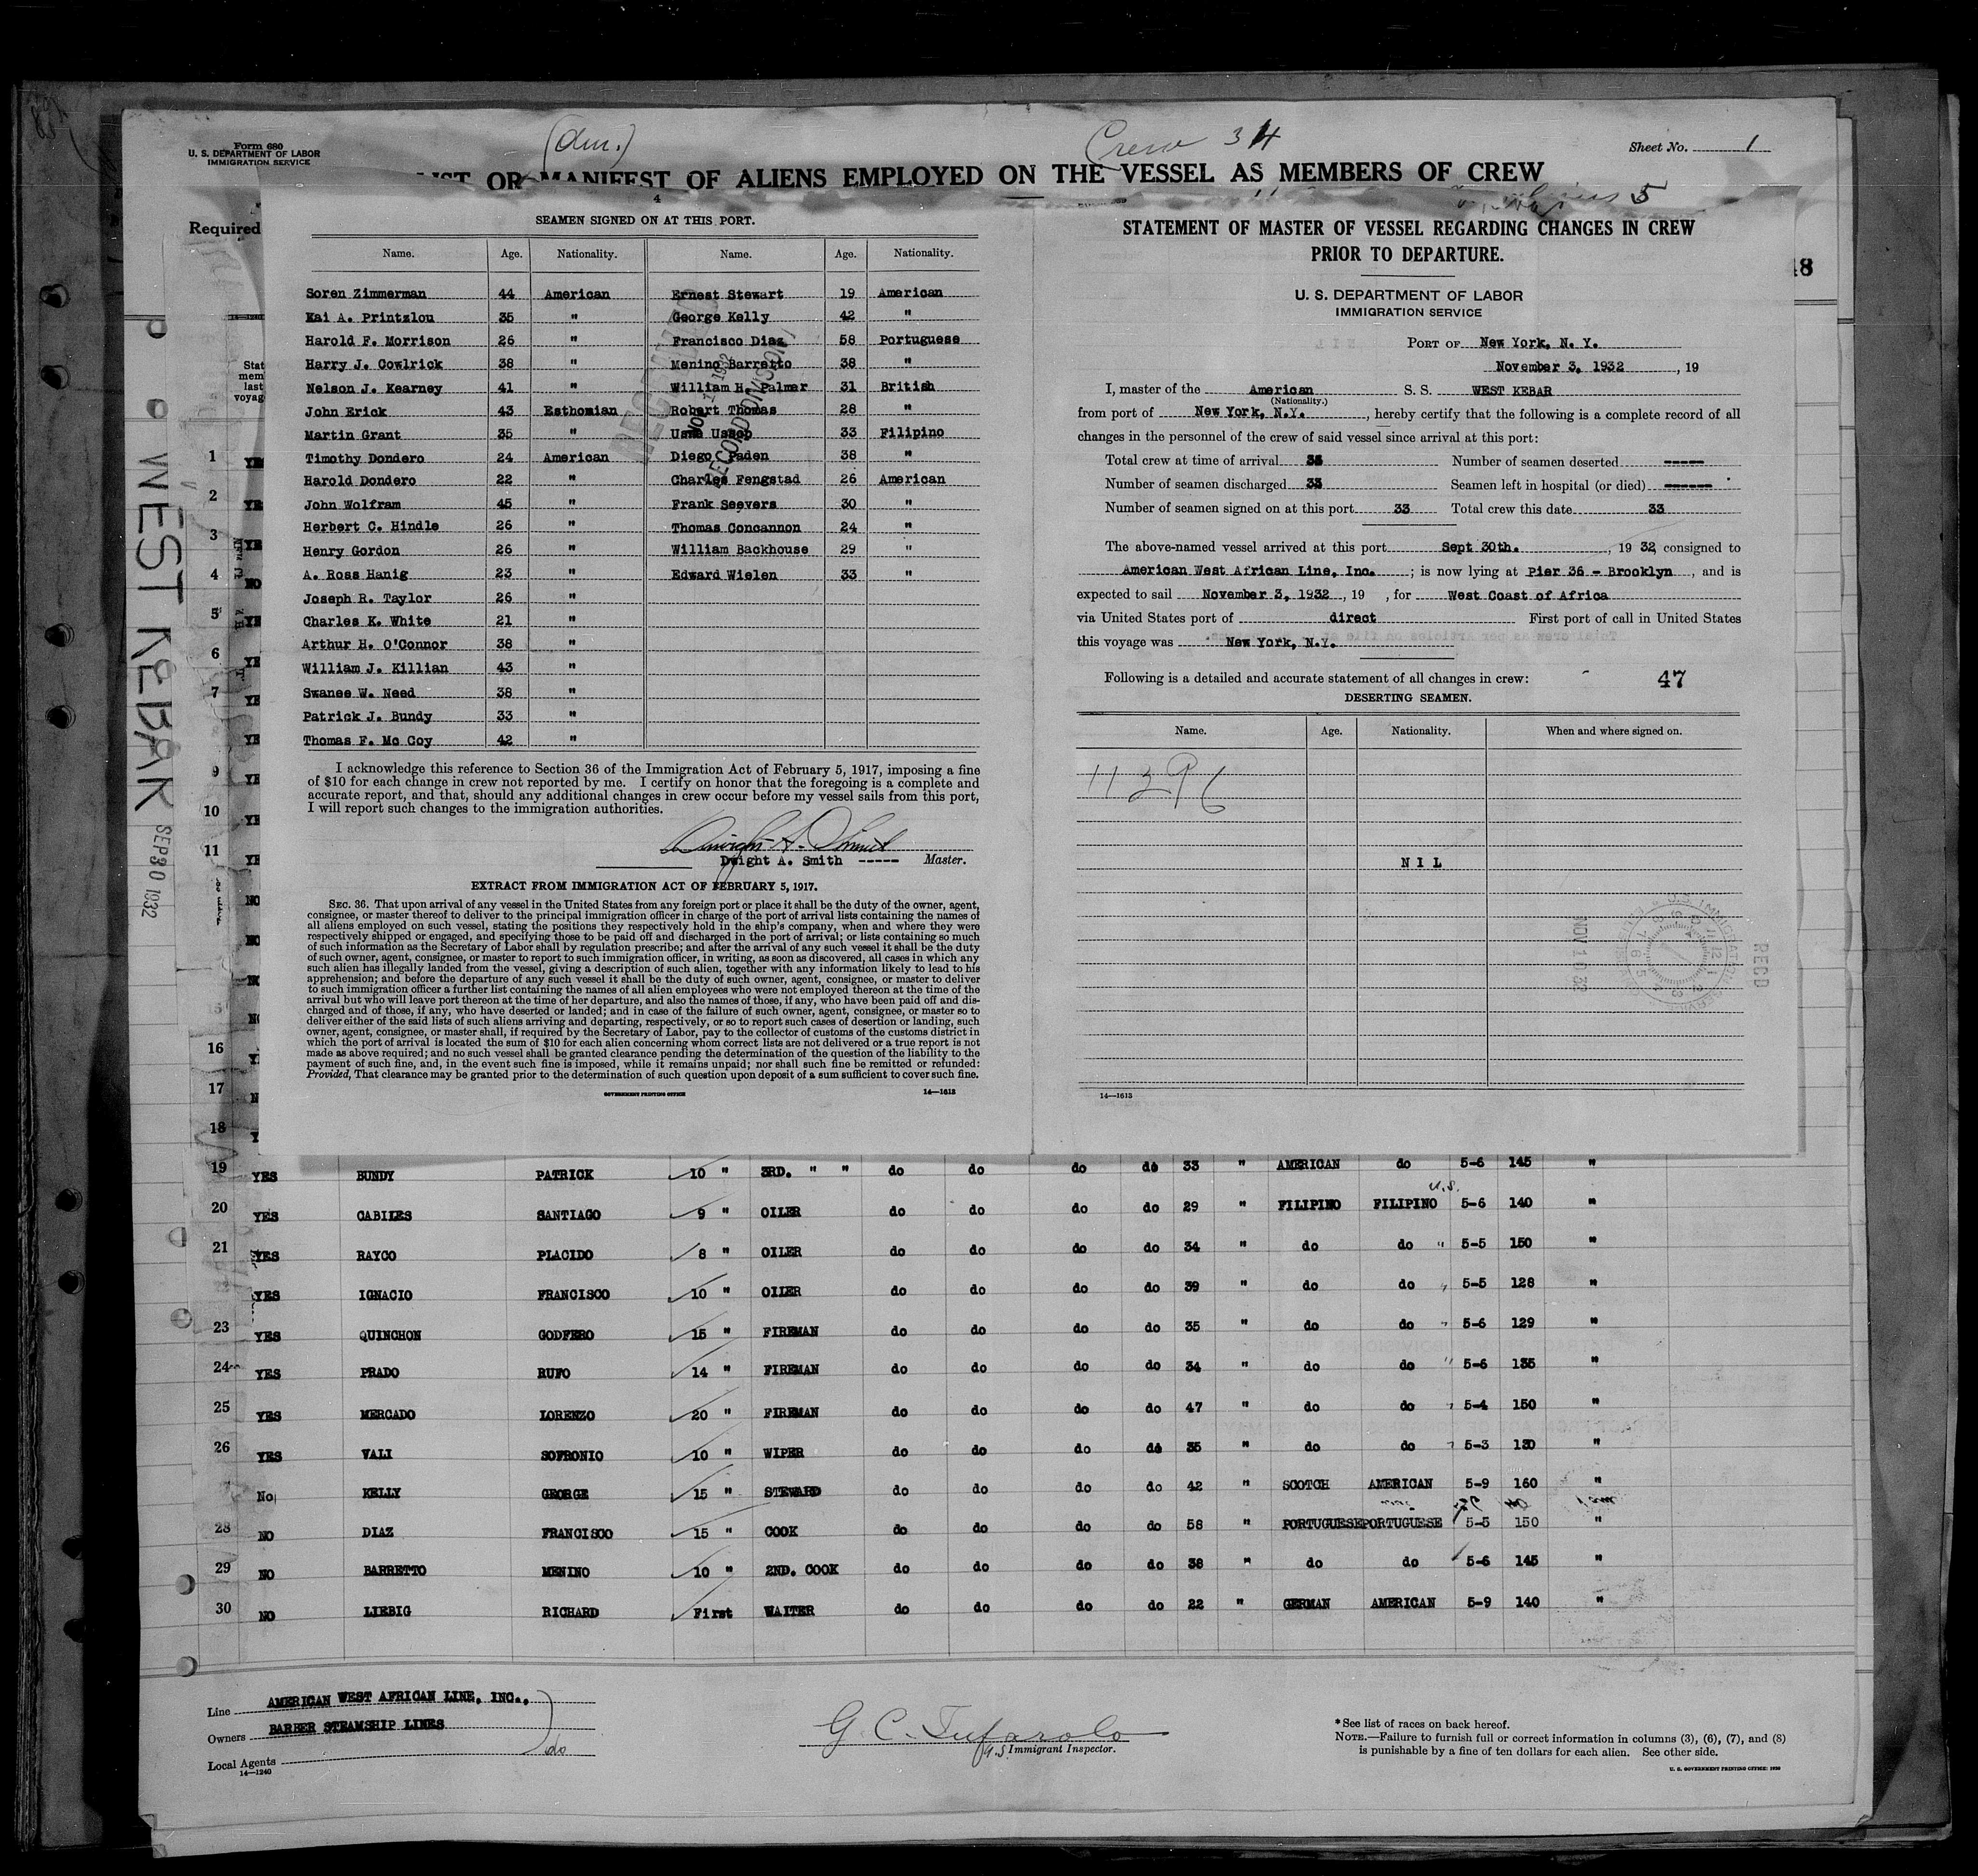 Form 680
U. S. DEPARTMENT OF LABOR
IMMIGRATION SERVICE
Crew 34
Sheet No. 1
LIST OR MANIFEST OF ALIENS EMPLOYED ON THE VESSEL AS MEMBERS OF CREW
Required
4
SEAMEN SIGNED ON AT THIS PORT.
Name. Age. Nationality. Name. Age. Nationality.
Soren Zimmerman 44 American Ernest Stewart 19 American
Kai A. Printzlou 35 " George Kelly 42 "
Harold F. Morrison 26 " Francisco Diaz 58 Portuguese
Harry J. Cowlrick 38 " Menino Barretto 38 "
Nelson J. Kearney 41 " William H. Palmer 31 British
John Erick 43 Esthonian Robert Thomas 28 "
Martin Grant 35 " 33 Filipino
Timothy Dondero 24 American Diego Paden 38 "
Harold Dondero 22 " Charles Fengstad 26 American
John Wolfram 45 " Frank Seevers 30 "
Herbert C. Hindle 26 " Thomas Concannon 24 "
Henry Gordon 26 " William Backhouse 29 "
A. Ross Hanig 23 " Edward Wielen 33 "
Joseph R. Taylor 26 "
Charles K. White 21 "
Arthur H. O'Connor 38 "
William J. Killian 43 "
Swanee W. Need 38 "
Patrick J. Bundy 33 "
Thomas F. Mc Coy 42 "
I acknowledge this reference to Section 36 of the Immigration Act of February 5, 1917, imposing a fine
of $10 for each change in crew not reported by me. I certify on honor that the foregoing is a complete and
accurate report, and that, should any additional changes in crew occur before my vessel sails from this port,
I will report such changes to the immigration authorities.
Dwight A. Smith
Dwight A. Smith ----- Master.
EXTRACT FROM IMMIGRATION ACT OF FEBRUARY 5, 1917.
SEC. 36. That upon arrival of any vessel in the United States from any foreign port or place it shall be the duty of the owner, agent,
consignee, or master thereof to deliver to the principal immigration officer in charge of the port of arrival lists containing the names of
all aliens employed on such vessel, stating the positions they respectively hold in the ship's company, when and where they were
respectively shipped or engaged, and specifying those to be paid off and discharged in the port of arrival; or lists containing so much
of such information as the Secretary of Labor shall by regulation prescribe; and after the arrival of any such vessel it shall be the duty
of such owner, agent, consignee, or master to report to such immigration officer, in writing, as soon as discovered, all cases in which any
such alien has illegally landed from the vessel, giving a description of such alien, together with any information likely to lead to his
apprehension; and before the departure of any such vessel it shall be the duty of such owner, agent, consignee, or master to deliver
to such immigration officer a further list containing the names of all alien employees who were not employed thereon at the time of the
arrival but who will leave port thereon at the time of her departure, and also the names of those, if any, who have been paid off and dis-
charged and of those, if any, who have deserted or landed; and in case of the failure of such owner, agent, consignee, or master so to
deliver either of the said lists of such aliens arriving and departing, respectively, or so to report such cases of desertion or landing, such
owner, agent, consignee, or master shall, if required by the Secretary of Labor, pay to the collector of customs of the customs district in
which the port of arrival is located the sum of $10 for each alien concerning whom correct lists are not delivered or a true report is not
made as above required; and no such vessel shall be granted clearance pending the determination of the question of the liability to the
payment of such fine, and, in the event such fine is imposed, while it remains unpaid; nor shall such fine be remitted or refunded:
Provided, That clearance may be granted prior to the determination of such question upon deposit of a sum sufficient to cover such fine.
GOVERNMENT PRINTING OFFICE 14—1613
STATEMENT OF MASTER OF VESSEL REGARDING CHANGES IN CREW
PRIOR TO DEPARTURE.
U. S. DEPARTMENT OF LABOR
IMMIGRATION SERVICE
PORT OF New York, N. Y.
November 3, 1932, 19
I, master of the American S. S. WEST KEBAR
(Nationality.)
from port of New York, N.Y., hereby certify that the following is a complete record of all
changes in the personnel of the crew of said vessel since arrival at this port:
Total crew at time of arrival 33 Number of seamen deserted -----
Number of seamen discharged 33 Seamen left in hospital (or died) ------
Number of seamen signed on at this port 33 Total crew this date 33
The above-named vessel arrived at this port Sept 30th., 19 32 consigned to
American West African Line, Inc. ; is now lying at Pier 36 - Brooklyn, and is
expected to sail November 3, 1932, 19 , for West Coast of Africa
via United States port of direct First port of call in United States
this voyage was New York, N.Y.
Following is a detailed and accurate statement of all changes in crew: 47
DESERTING SEAMEN.
Name. Age. Nationality. When and where signed on.
11396
NIL
RECD
14—1613
WEST KEBAR
SEP 30 1932
19 YES BUNDY PATRICK 10 " 3RD. " " do do do do 33 " AMERICAN do 5-6 145 "
U.S.
20 YES CABILES SANTIAGO 9 " OILER do do do do 29 " FILIPINO FILIPINO 5-6 140 "
21 YES RAYCO PLACIDO 8 " OILER do do do do 34 " do do " 5-5 150 "
YES IGNACIO FRANCISCO 10 " OILER do do do do 39 " do do " 5-5 128 "
23 YES QUINCHON GODFERO 15 " FIREMAN do do do do 35 " do do " 5-6 129 "
24 YES PRADO RUFO 14 " FIREMAN do do do do 34 " do do " 5-6 135 "
25 YES MERCADO LORENZO 20 " FIREMAN do do do do 47 " do do " 5-4 150 "
26 YES VALI SOFRONIO 10 " WIPER do do do do 35 " do do " 5-3 130 "
No KELLY GEORGE 15 " STEWARD do do do do 42 " SCOTCH AMERICAN 5-9 160 "
28 NO DIAZ FRANCISCO 15 " COOK do do do do 58 " PORTUGUESE PORTUGUESE 5-5 150 "
29 NO BARRETTO MENINO 10 " 2ND. COOK do do do do 38 " do do 5-6 145 "
30 NO LIEBIG RICHARD First WAITER do do do do 22 " GERMAN AMERICAN 5-9 140 "
Line AMERICAN WEST AFRICAN LINE, INC.,
Owners BARBER STEAMSHIP LINES
Local Agents do
14—1240
G. C. Tufarolo
U.S. Immigrant Inspector.
* See list of races on back hereof.
NOTE.—Failure to furnish full or correct information in columns (3), (6), (7), and (8)
is punishable by a fine of ten dollars for each alien. See other side.